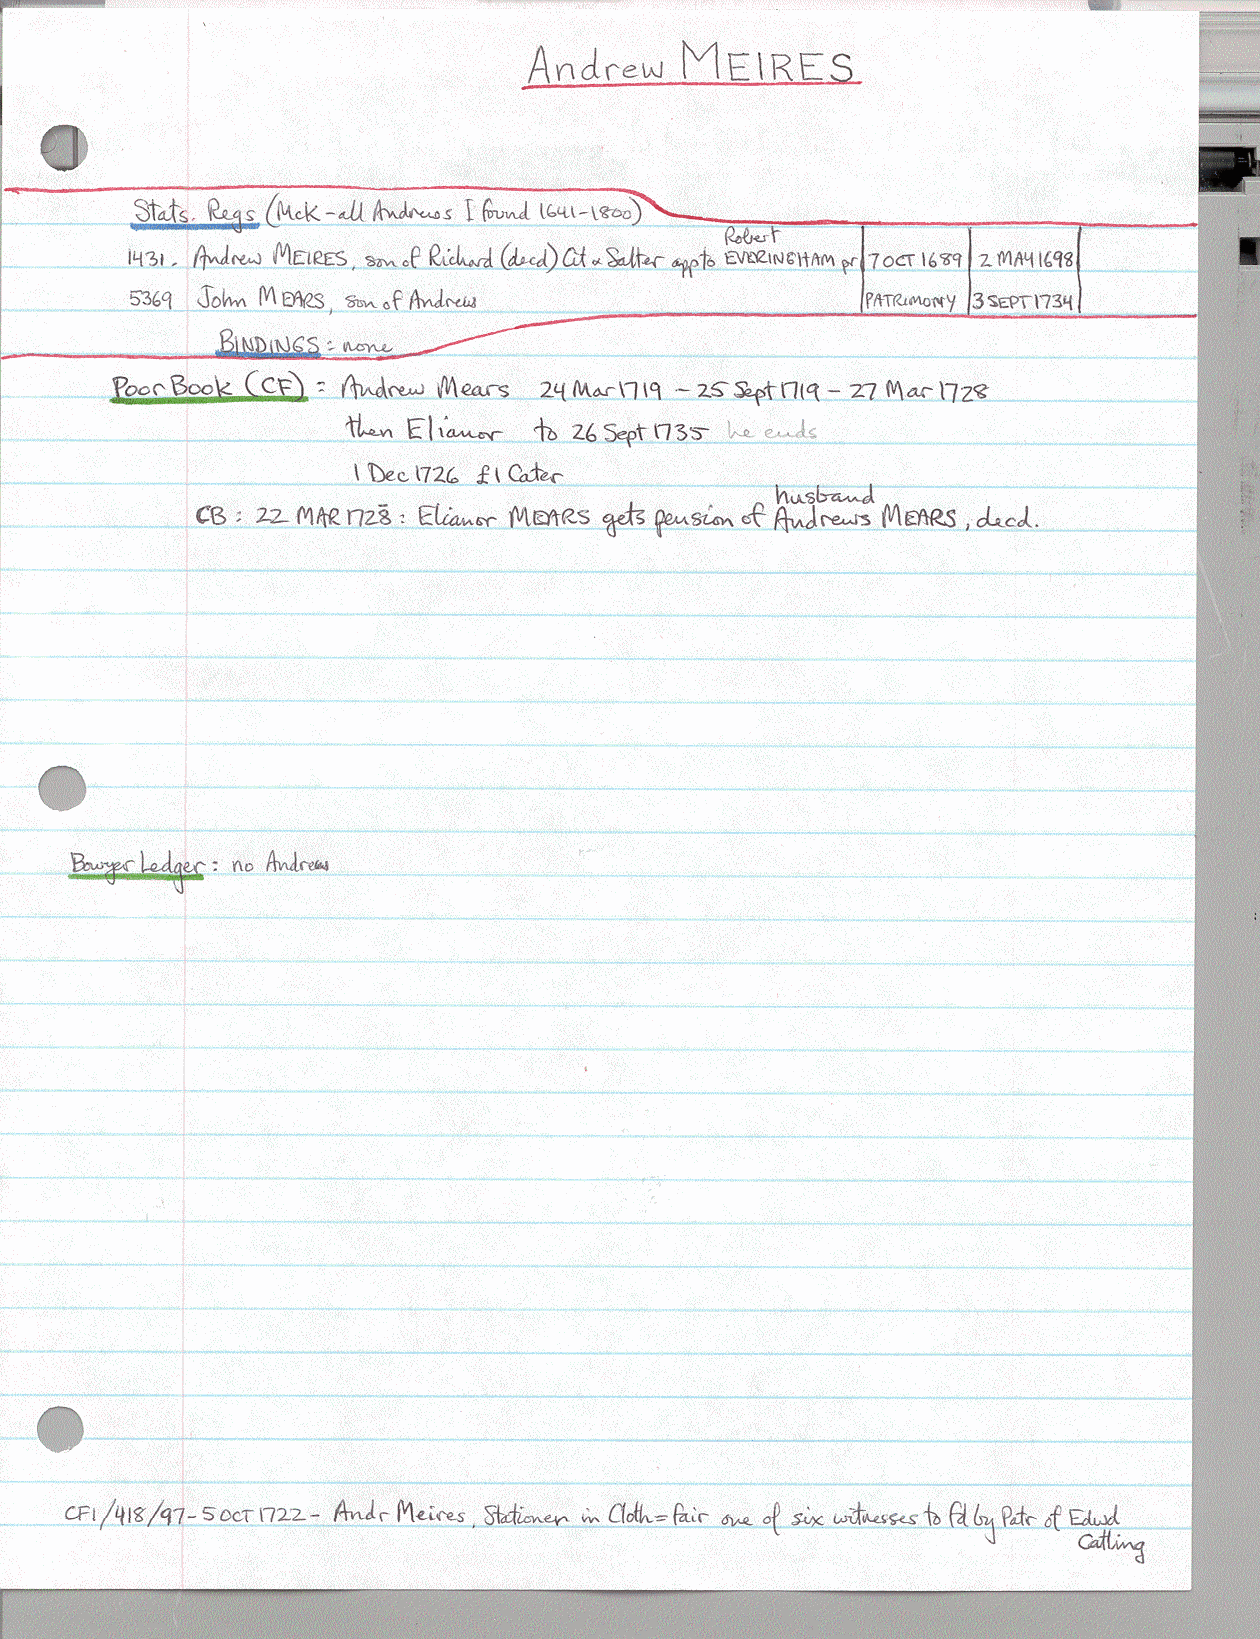 Andrew MEIRES
Stats. Regs (McK - all Andrews I found 1641-1800)
1431. Andrew MEIRES, son of Richard (decd) Cit & Salter app to Robert EVERINGHAM pr 7 OCT 1689 2 MAY 1698
5369 John MEARS, son of Andrew PATRIMONY 3 SEPT 1734
BINDINGS = none
Poor Book (CF) = Andrew Mears 24 Mar 1719 - 25 Sept 1719 - 27 Mar 1728
then Elianor to 26 Sept 1735 he ends
1 Dec 1726 £1 Cater
CB : 22 MAR 1728 : Elianor MEARS gets pension of husband Andrews MEARS, decd.
Bowyer Ledger : no Andrew
CF1/418/97 - 5 OCT 1722 - Andr Meires, Stationer in Cloth=fair one of six witnesses to fd by Patr of Edwd
Catling